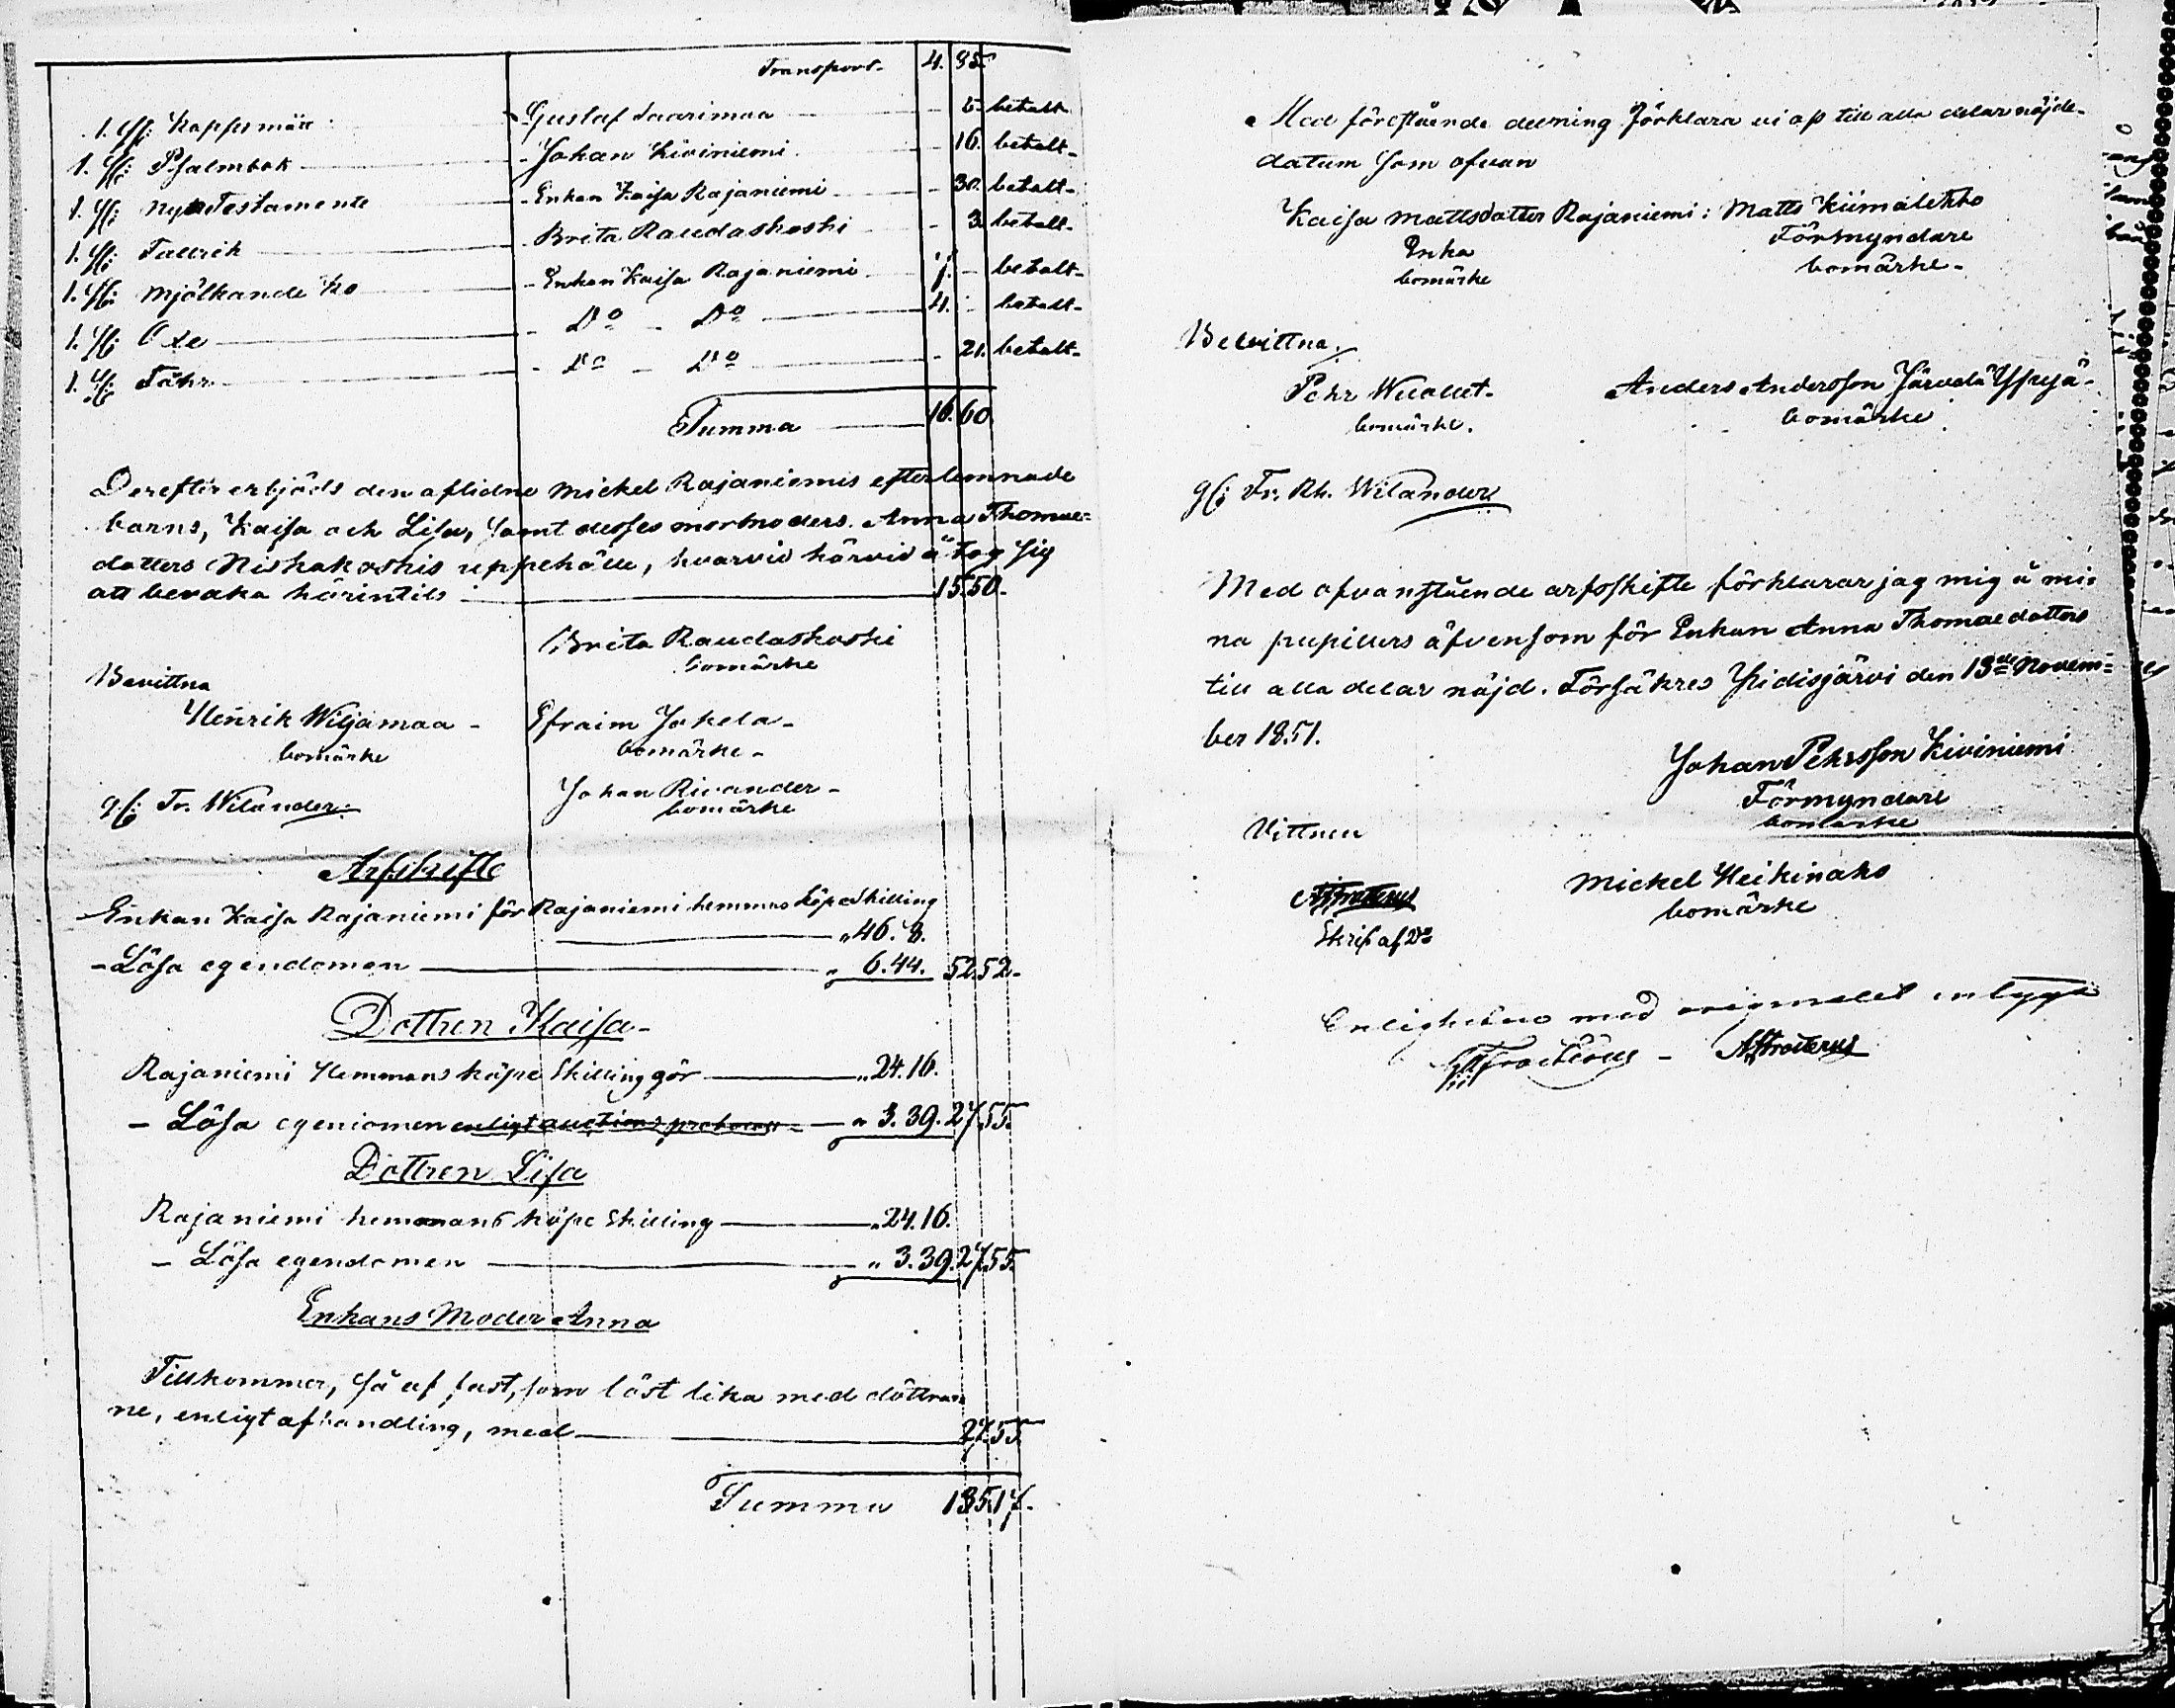 Transport. 4. 35.
1. St: Kappsmått Gustaf Saarimaa - 5. betalt
1. St: Psalmbok - Johan Kiviniemi - 16. betalt-
1. St: Nya Testamente - Enkan Kaisa Rajaniemi - 30. betalt-
1. St: Tallrik - Brita Raudaskoski - 3. betalt-
1. St: Mjölkande ko - Enkan Kaisa Rajaniemi 7. - betalt-
1. St: Oxe - Do - Do 4. - betalt-
1. St: Fåhr - Do - Do - 21. betalt-
Summa 16. 60.
Derefter erbjöds den aflidne Mickel Rajaniemis efterlemnade
barns, Kaisa och Lisa, samt desses mormoders Anna Thomae=
dotters Niskakoskis uppehälle, hvarvid härvid åtog sig
att bevaka härintils 15.50.
Brita Raudaskoski
bomärke
Bevittna
Henrik Wiljamaa - Efraim Jokela -
bomärke bomärke -
Johan Rivander -
g/: Fr. Wilander: bomärke
Arfskifte
Enkan Kaisa Rajaniemi för Rajaniemi hemmans köpe Skilling
" 46. 8.
- Lösa egendomen " 6.44. 52.52.
Dottren Kaisa -
Rajaniemi Hemmans köpe Skilling gör " 24.16.
- Lösa egendomen enligt auctions protocoll - " 3.39. 27.55.
Dottren Lisa
Rajaniemi hemmans köpe Skilling " 24.16.
- Lösa egendomen " 3.39. 27.55.
Enkans Moder Anna
Tillkommer, så af fast, som löst lika med döttrar=
ne, enligt afhandling, med 27.55.
Summa 135.17.
Med föreståënde delning förklara vi oss till alla delar nöjde-
datum som ofvan
Kaisa Mattsdotter Rajaniemi: Matts Kiimalehto
Enka Förmyndare
bomärke bomärke -
Bevittna
Pehr Anders Andersson Järvelä
bomärke. bomärke
g/: Fr. Rh. Wilander
Med ofvanstående arfsskifte förklarar jag mig å mi=
na pupillers äfvensom för Enkan Anna Thomaedotters
till alla delar nöjd. Försäkres Pidisjärvi den 13de Novem=
ber 1851.
Johan Pehrsson Kiviniemi
Förmyndare
bomärke
Vittnen
Mickel Heikinaho
Skrif af Do bomärke
Enligheten med originalet intyga